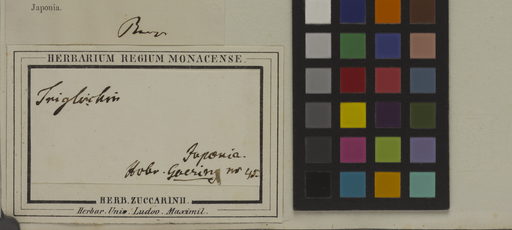 Japonia.
HERBARIUM REGIUM MONACENSE.
Triglochin
Japonia.
Goering nr 45.
HERB. ZUCCARINII.
Herbar. Univ. Ludov. Maximil.